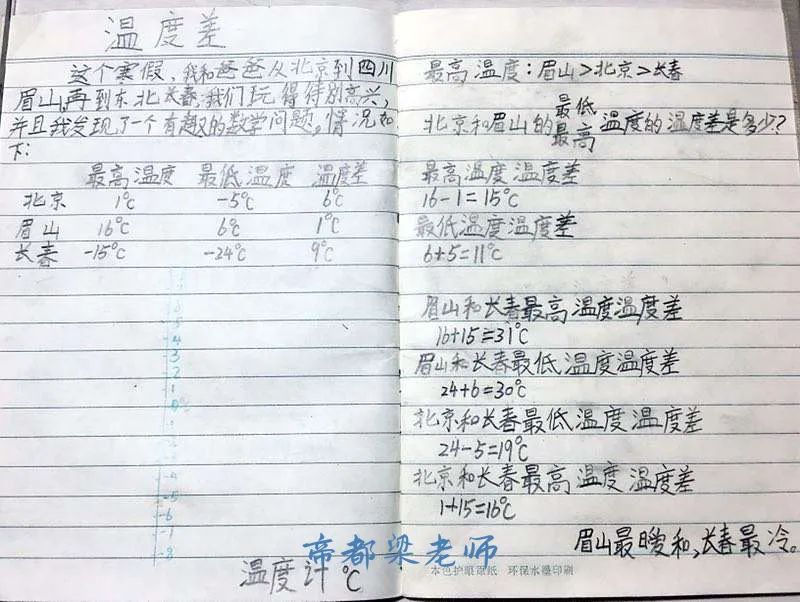 温度差
这个寒假,我和爸爸从北京到四川
眉山,再到东北长春,我们玩得特别高兴,
并且我发现了一个有趣的数学问题。情况如
下:
最高温度 最低温度 温度差
北京 1℃ -5℃ 6℃
眉山 16℃ 6℃ 1℃
长春 -15℃ -24℃ 9℃
5
4
3
2
1
0
-5
-6
-8
温度计℃
最高温度:眉山>北京>长春
北京和眉山的最低
最高温度的温度差是多少?
最高温度温度差
16-1=15℃
最低温度温度差
6+5=11℃
眉山和长春最高温度温度差
16+15=31℃
眉山和长春最低温度温度差
24+6=30℃
北京和长春最低温度温度差
24-5=19℃
北京和长春最高温度温度差
1+15=16℃
眉山最暖和,长春最冷。
帝都梁老师
本色护眼原纸 环保水墨印刷